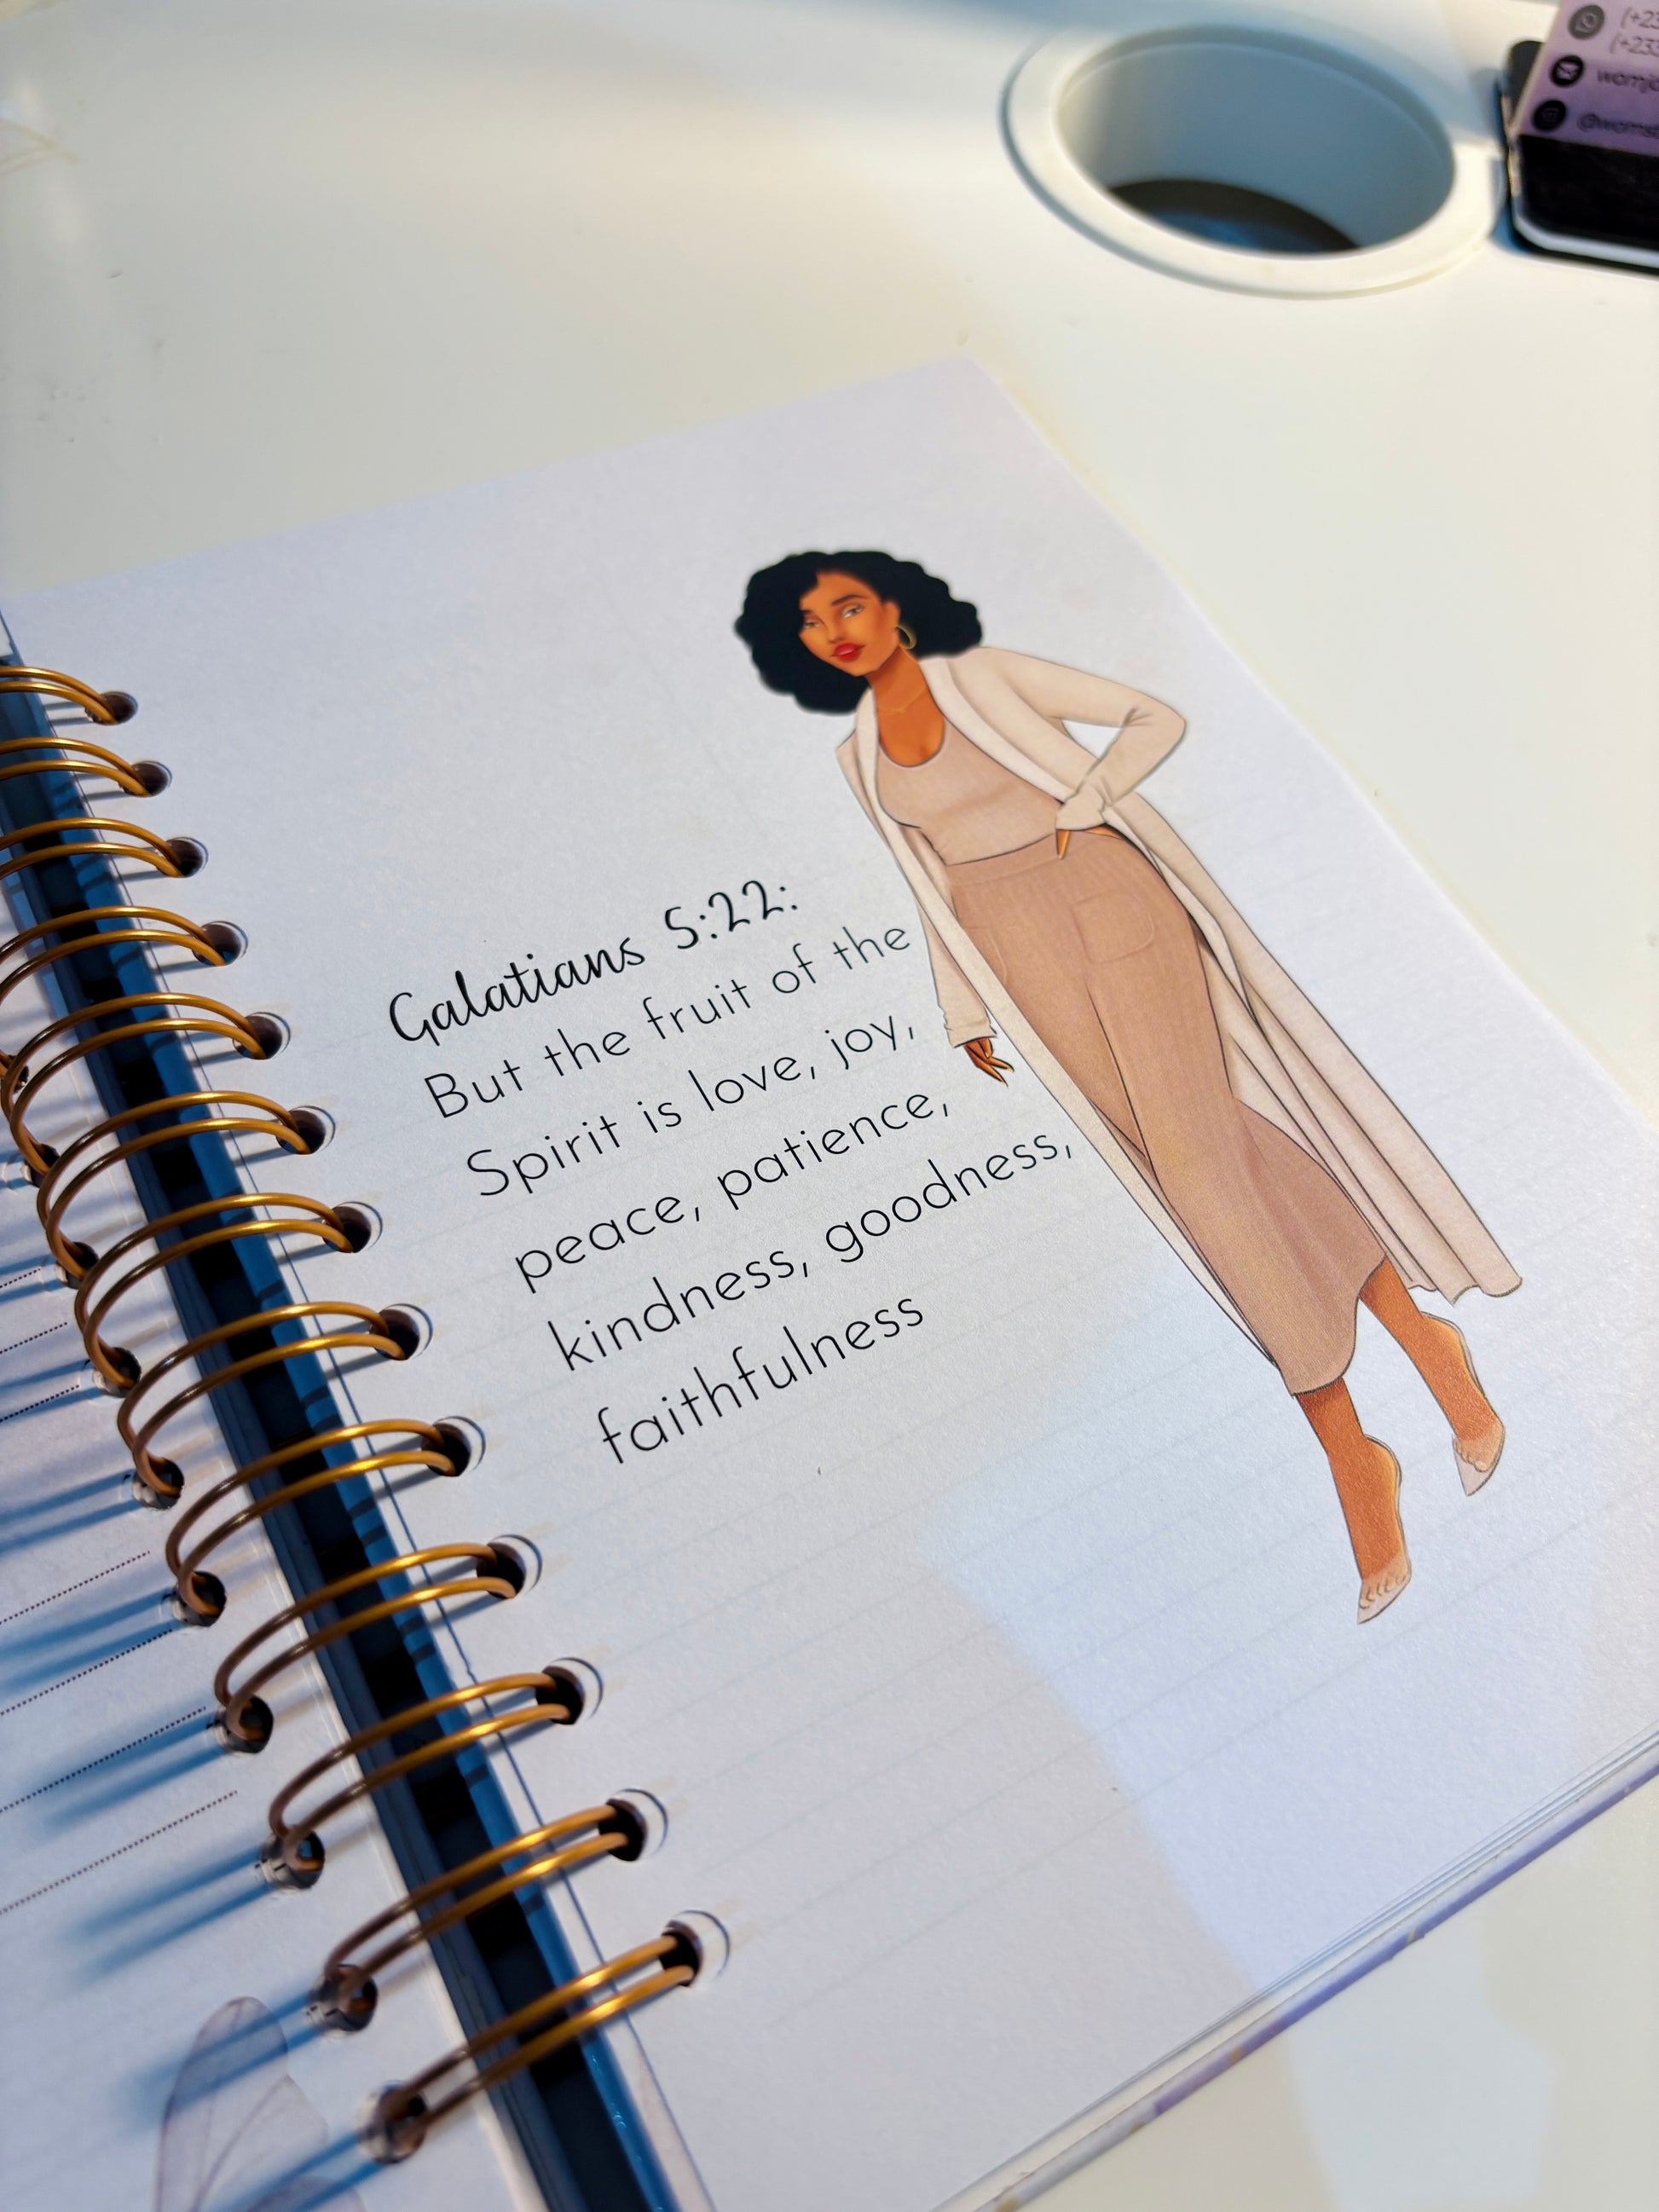 (+233
Galatians 5:22:
But the fruit of the
Spirit is love, joy,
peace, patience,
kindness, goodness,
faithfulness